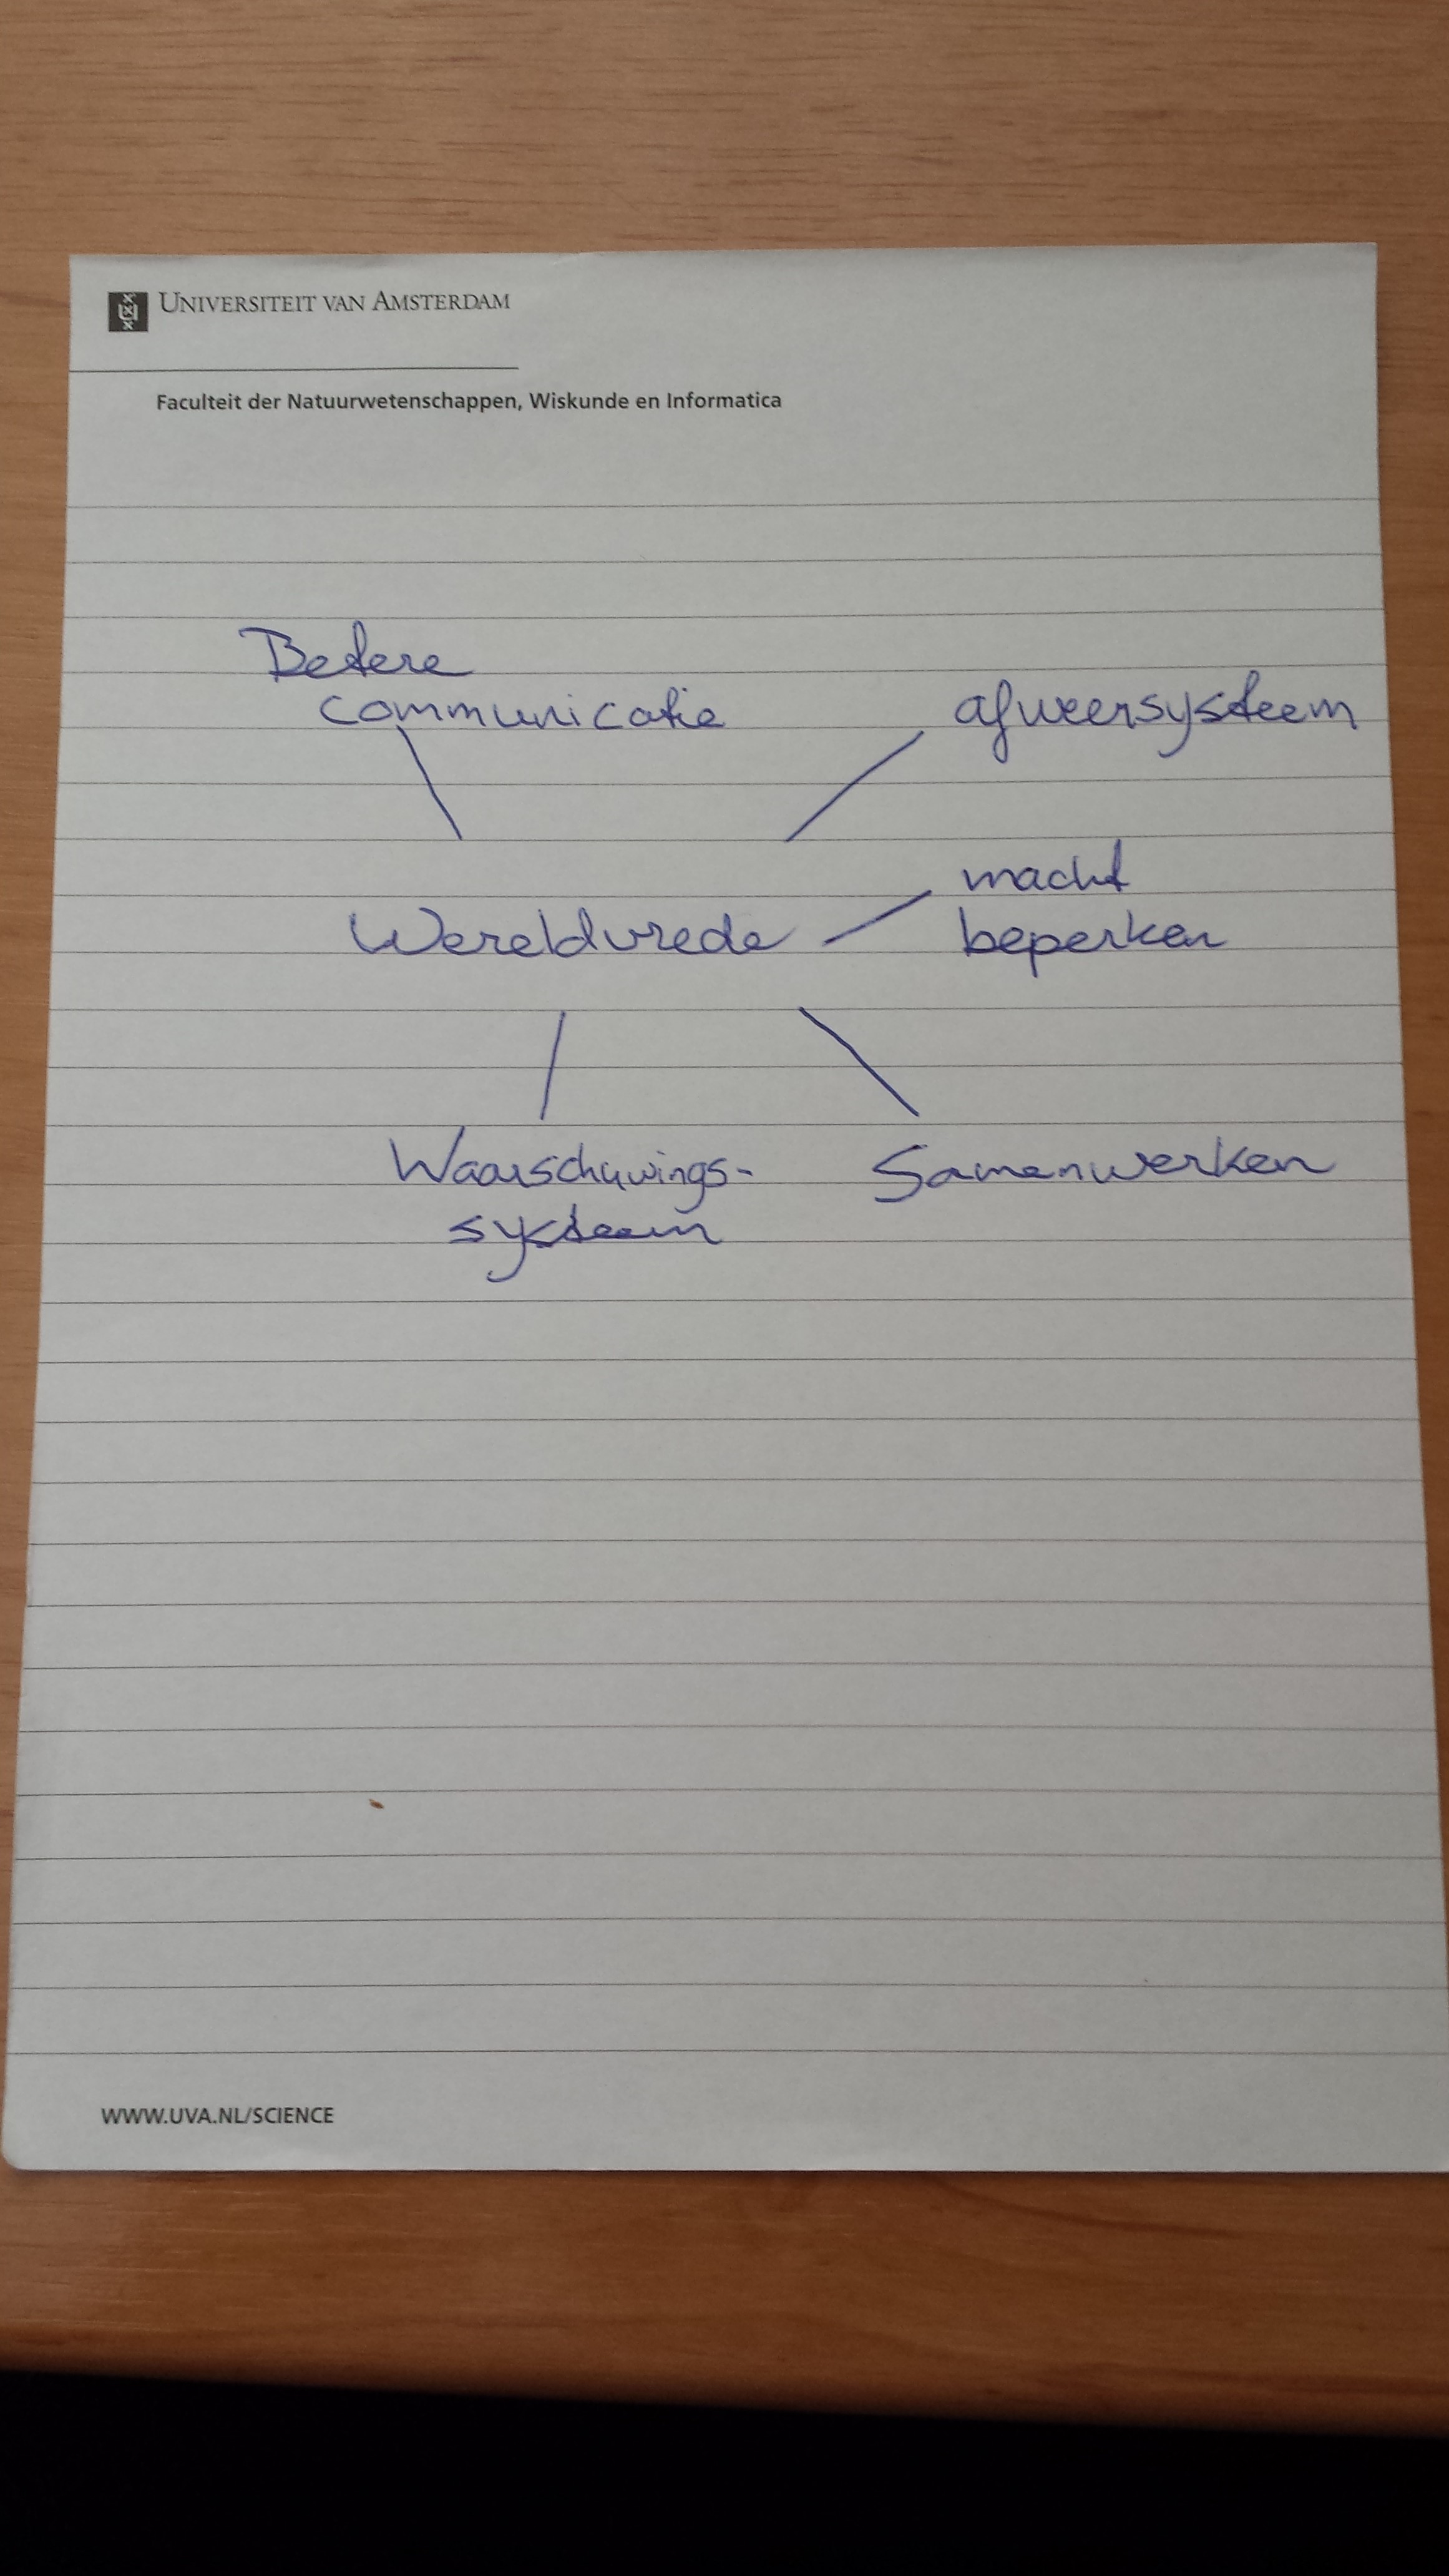 UNIVERSITEIT VAN AMSTERDAM
Faculteit der Natuurwetenschappen, Wiskunde en Informatica
Betere
communicatie
afweersysteem
macht
beperken
Wereldvrede
Waarschuwings-
systeem
Samenwerken
WWW.UVA.NL/SCIENCE